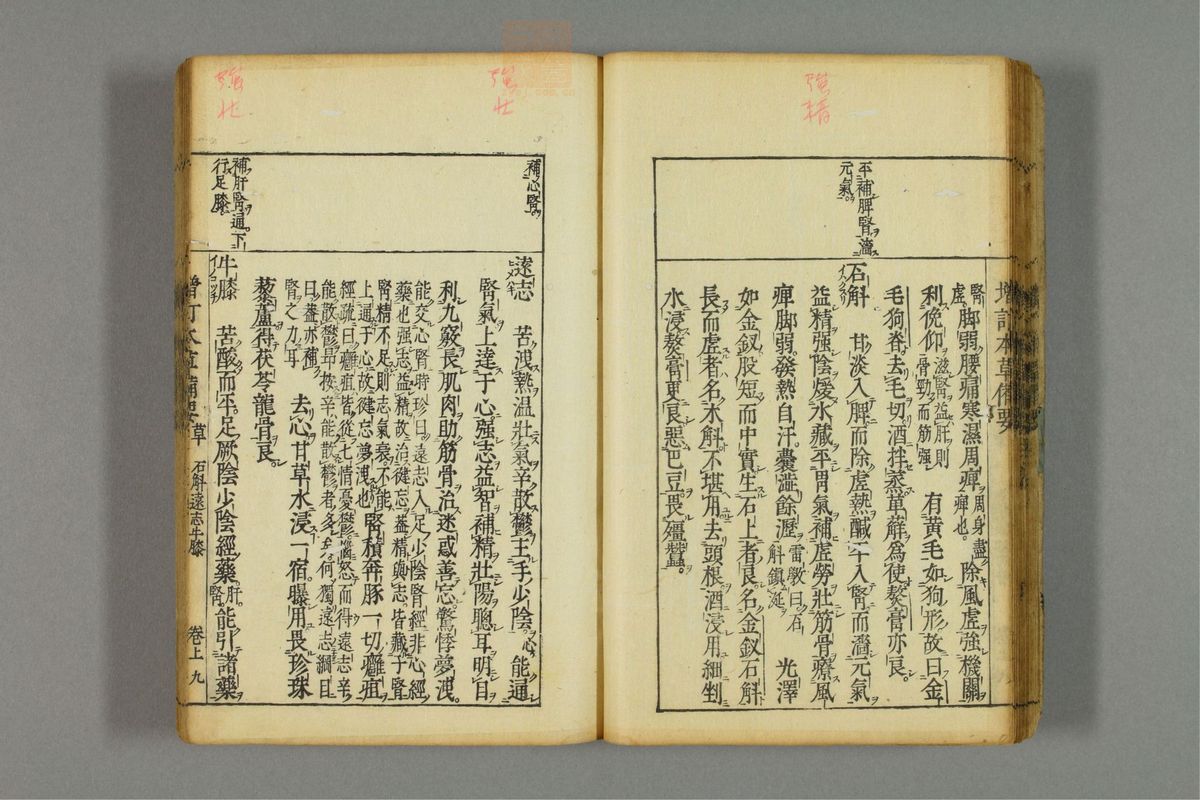 強精
平補脾腎濇
元氣
增訂本草備要
腎虛
脚弱腰痛寒濕周痺周身盡痺也除風虛強機關
利俛仰滋腎益肝則骨勁而筋強有黃毛如狗形故曰金
毛狗脊去毛切酒拌蒸萆薢爲使熬膏亦良
石斛 甘淡入脾而除虛熱鹹平入腎而濇元氣
益精强陰煖水藏平胃氣補虛勞壯筋骨療風
痺脚弱發熱自汗囊濇餘瀝雷斆曰石斛鎮延光澤
如金釵股短而中實生石上者良名金釵石斛
長而虛者名水斛不堪用去頭根酒浸用細剉
水浸熬膏更良惡巴豆畏殭蠶
強壯
補心腎
遠志 苦洩熱温壯氣辛散鬱主手少陰心能通
腎氣上達于心强志益智補精壯陽聰耳明目
利九竅長肌肉助筋骨治迷惑善忘驚悸夢洩
能交心腎時珍曰遠志入足少陰腎經非心經
藥也强志益精故治健忘蓋精與志皆藏于腎
腎精不足則志氣衰不能
上通于心故健忘夢洩也腎積奔豚一切癰疽
經疏曰癰疽皆從七情憂鬱惱怒而得遠志辛
能散鬱昂按辛能散鬱者多矣何獨遠志綱目
曰蓋亦補
腎之力耳去心甘草水浸一宿曝用畏珍珠
藜蘆得茯苓龍骨良
強壯
補肝腎通下
行足膝
牛膝 苦酸而平足厥陰少陰經藥肝腎能引諸藥
增訂本草備要 草 石斛遠志牛膝 卷上 九